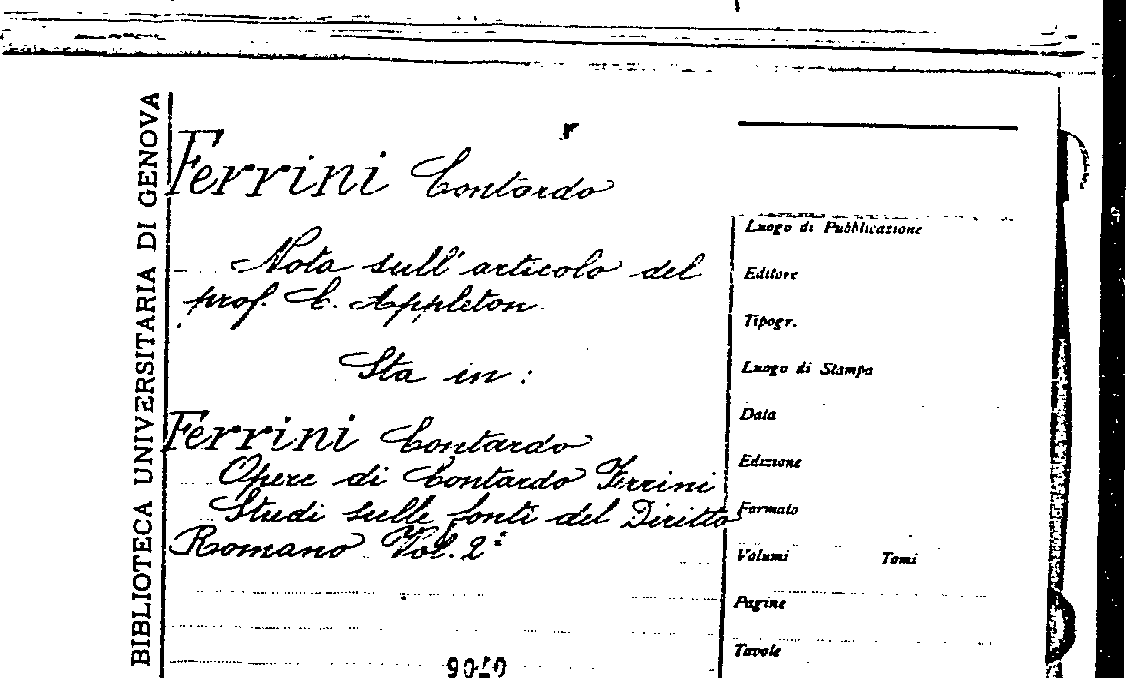 BIBLIOTECA UNIVERSITARIA DI GENOVA
Ferrini Contardo
Nota sull'articolo del
prof. C. Appleton
Sta in:
Ferrini Contardo
Opere di Contardo Ferrini
Studi sulle fonti del Diritto
Romano Vol. 2º
Luogo di Pubblicazione
Editore
Tipogr.
Luogo di Stampa
Data
Edizione
Formato
Volumi Tomi
Pagine
Tavole